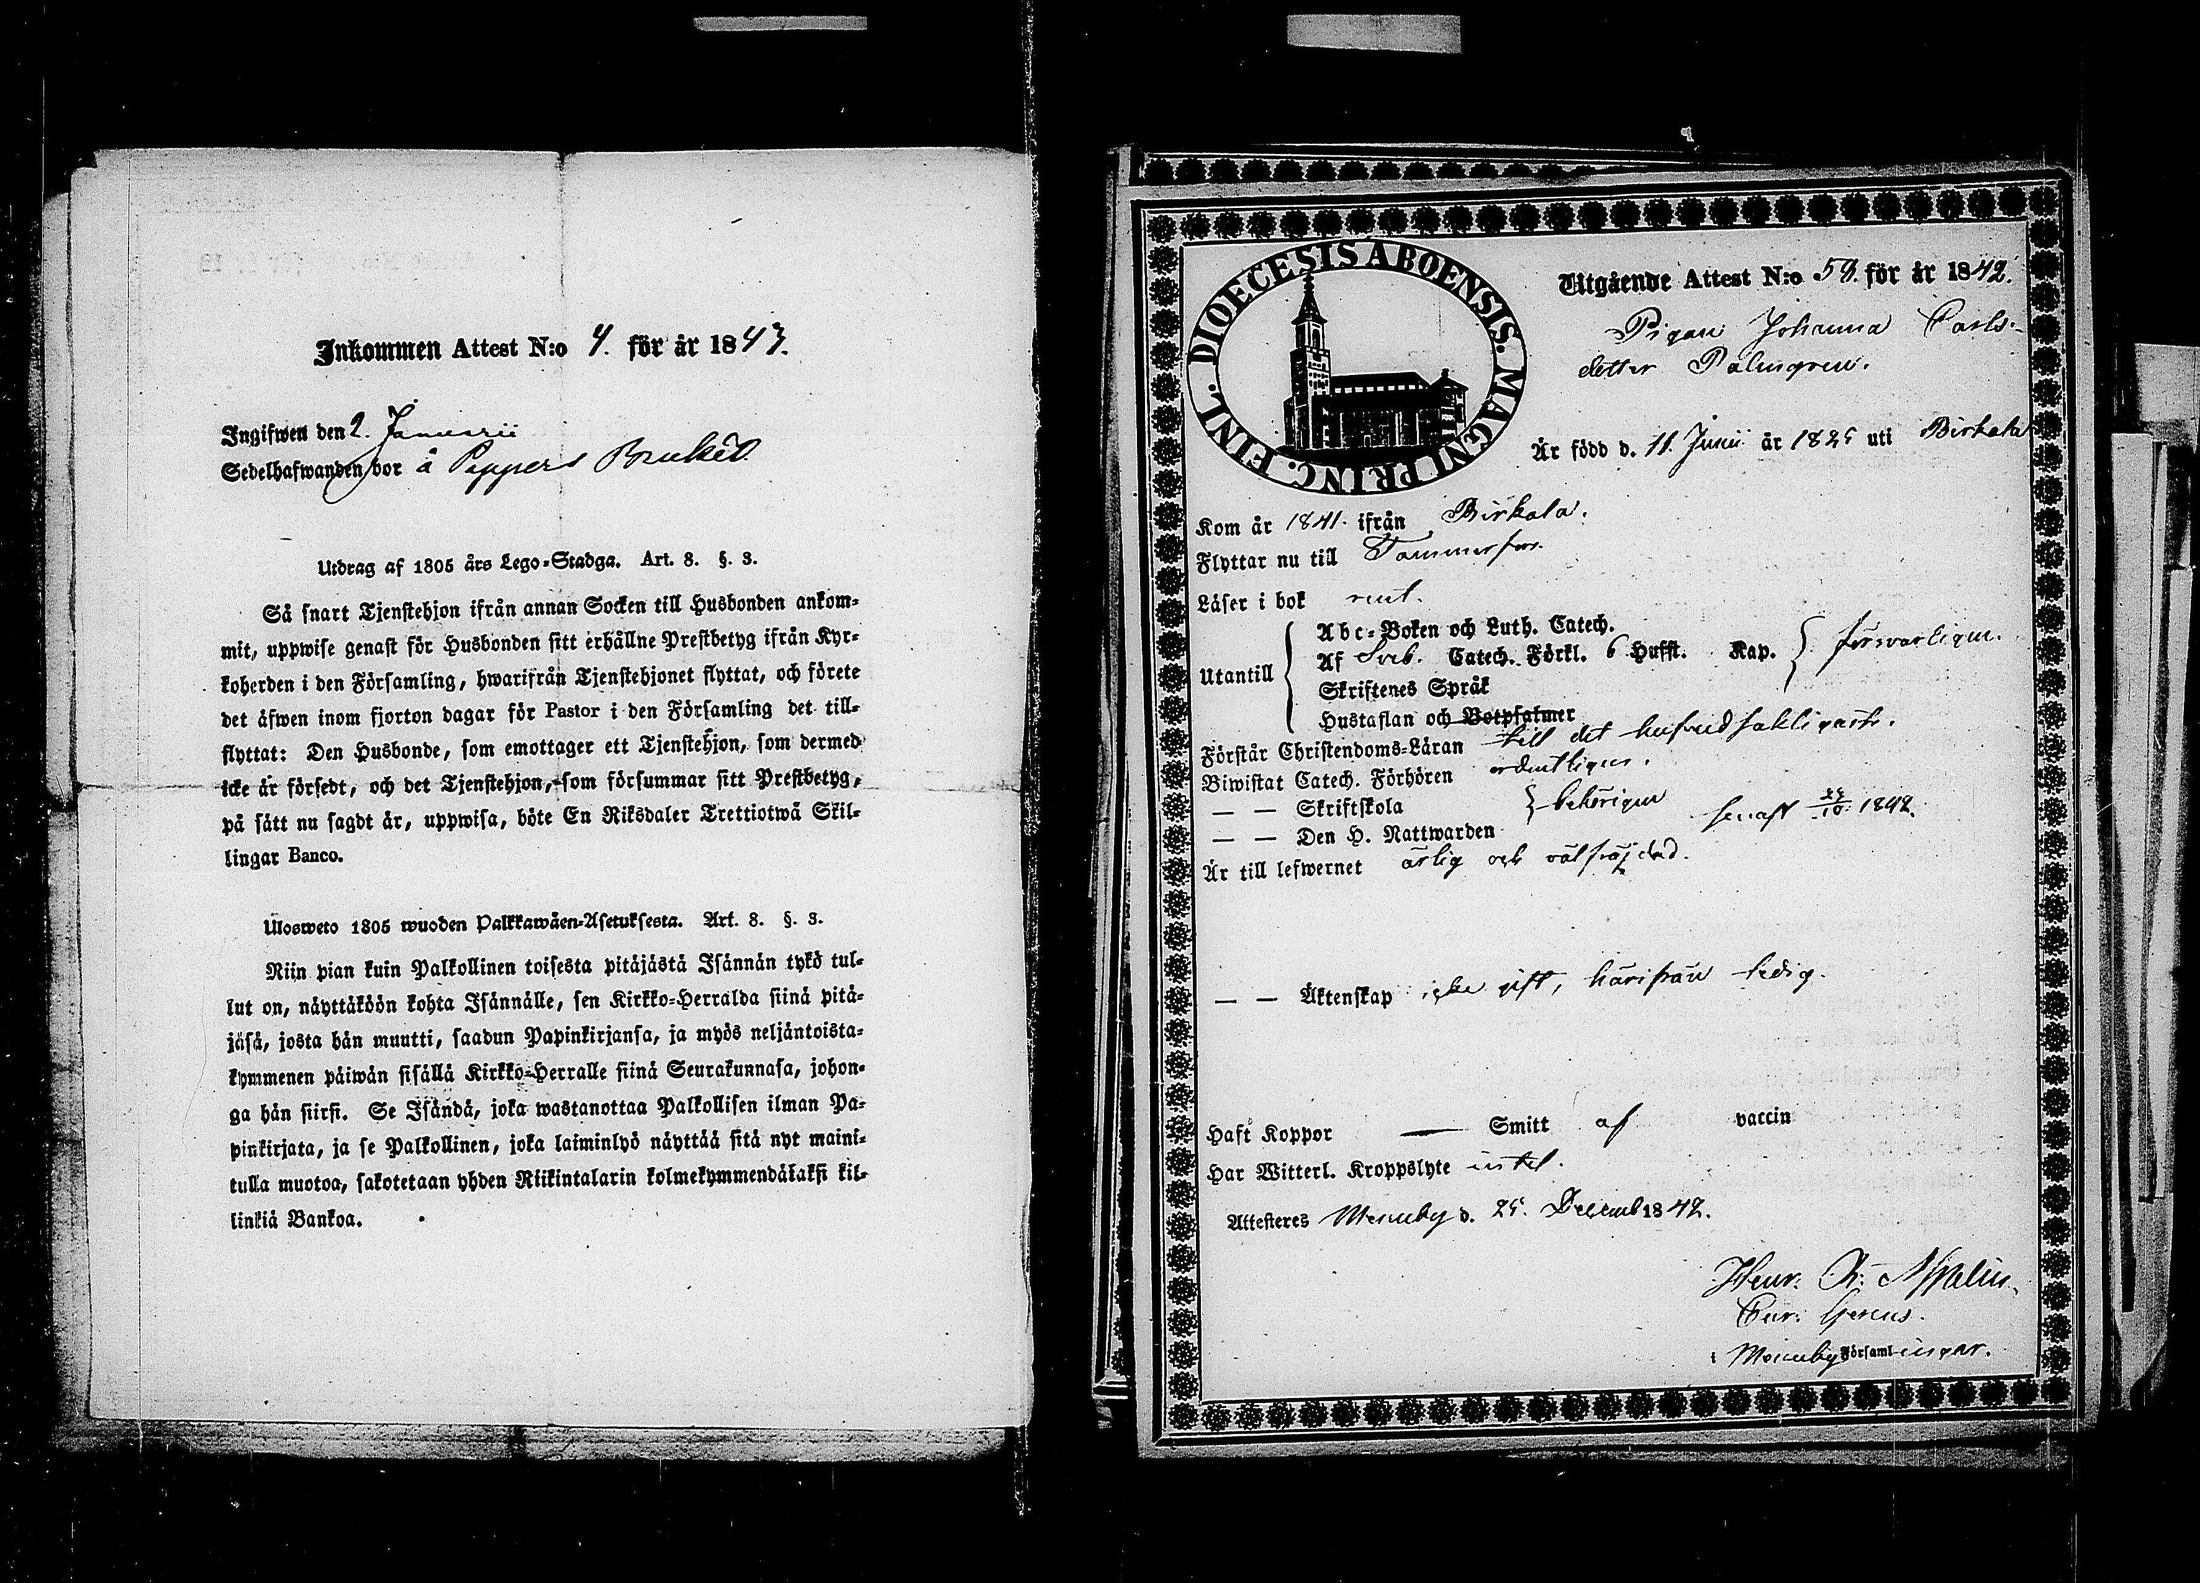 Inkommen Attest N:o 4. för år 1843.
Ingifwen den 2. Januarii
Sedelhafwanden bor å Pappers Bruket
Utdrag af 1805 års Lego-Stadga. Art. 8. §. 3.
Så snart Tjenstehjon ifrån annan Socken till Husbonden ankom-
mit, uppwise genast för Husbonden sitt erhållne Prestbetyg ifrån Kyr-
koherden i den Församling, hwarifrån Tjenstehjonet flyttat, och förete
det äfwen inom fjorton dagar för Pastor i den Församling det till-
flyttat: Den Husbonde, som emottager ett Tjenstehjon, som dermed
icke är försedt, och det Tjenstehjon, som försummar sitt Prestbetyg,
på sätt nu sagdt är, uppwisa, böte En Riksdaler Trettiotwå Skil-
lingar Banco.
Ulosweto 1805 wuoden Palkkawäen-Asetuksesta. Art. 8. §. 3.
Niin pian kuin Palkollinen toisesta pitäjästä Isännän tykö tul-
lut on, näyttäköön kohta Isännälle, sen Kirkko-Herralda siinä pitä-
jäsä, josta hän muutti, saadun Papinkirjansa, ja myös neljäntoista-
kymmenen päiwän sisällä Kirkko-Herralle siinä Seurakunnasa, johon-
ga hän siirsi. Se Isändä, joka wastanottaa Palkollisen ilman Pa-
pinkirjata, ja se Palkollinen, joka laiminlyö näyttää sitä nyt maini-
tulla muotoa, sakotetaan yhden Riikintalarin kolmekymmendäkaksi kil-
linkiä Bankoa.
DIOECESIS ABOENSIS. MAGNI PRINC. FINL.
Utgående Attest N:o 58. för år 1842.
Pigan Johanna Carls-
dotter Palmgren.
Är född d. 11. Junii år 1825 uti Birkala
Kom år 1841. ifrån Birkala.
Flyttar nu till Tammerfors.
Läser i bok rent.
Utantill
Abc-Boken och Luth. Catech.
Af Sveb. Catech. Förkl. 6 Hufst. Kap. försvarligen.
Skriftenes Språk
Hustaflan och Botpsalmer
Förstår Christendoms-Läran till det hufvudsakligaste.
Biwistat Catech. Förhören ordentligen.
— — Skriftskola behörigen
— — Den H. Nattwarden senast 1842.
Är till lefwernet ärlig och välfräjdad.
— — Äktenskap icke gift, härifrån ledig.
Haft Koppor — Smitt af vaccin
Har Witterl. Kroppslyte intet.
Attesteres Messuby d. 25. Decemb 1842.
Henr.
i Messuby Församlingar.